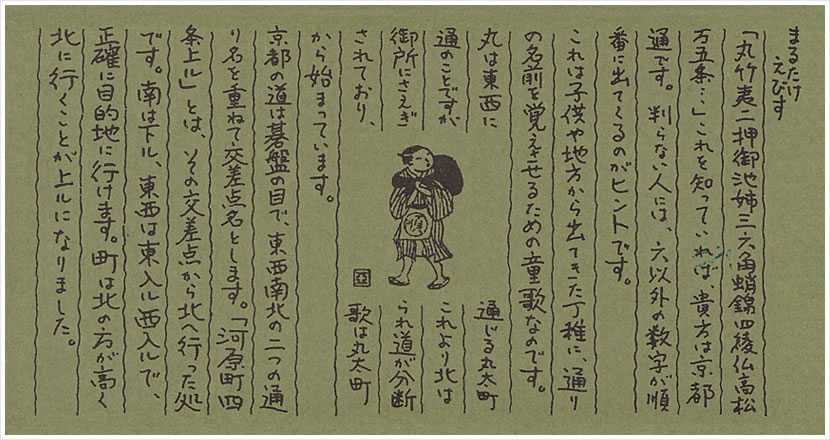 まるたけ
えびす
「丸竹夷二押御池姉三六角蛸錦四綾仏高松
万五条…」これを知っていれば、貴方は京都
通です。判らない人には、六以外の数字が順
番に出てくるのがヒントです。
これは子供や地方から出てきた丁稚に、通り
の名前を覚えさせるための童歌なのです。
丸は東西に
通じる丸太町
通のことですが、
これより北は
御所にさえぎ
られ道が分断
されており、
歌は丸太町
から始まっています。
京都の道は碁盤の目で、東西南北の二つの通
り名を重ねて交差点名とします。「河原町四
条上ル」とは、その交差点から北へ行った処
です。南は下ル、東西は東入ル西入ルで、
正確に目的地に行けます。町は北の方が高く
北に行くことが上ルになりました。